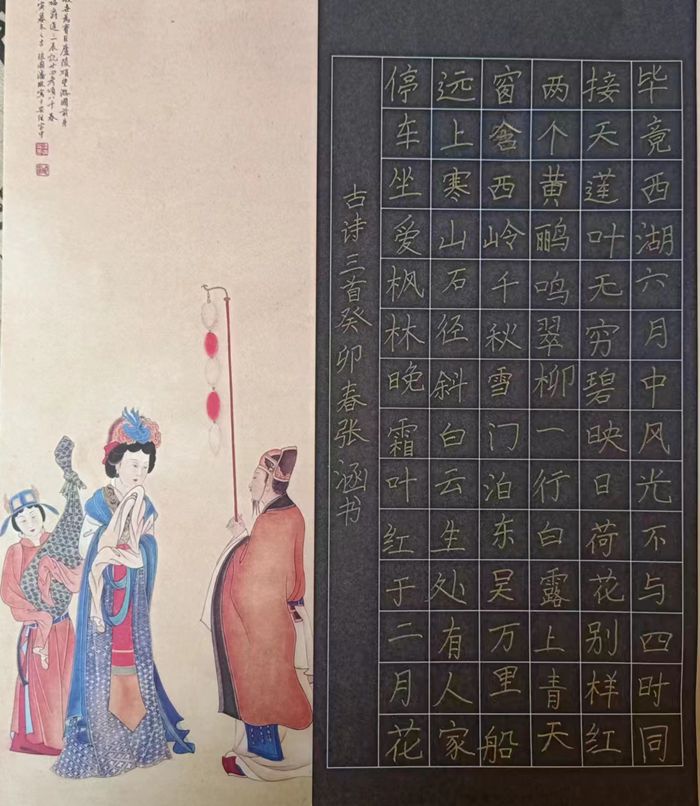 毕竟西湖六月中风光不与四时同
接天莲叶无穷碧映日荷花别样红
两个黄鹂鸣翠柳一行白露上青天
窗含西岭千秋雪门泊东吴万里船
远上寒山石径斜白云生处有人家
停车坐爱枫林晚霜叶红于二月花
古诗三首癸卯春张涵书